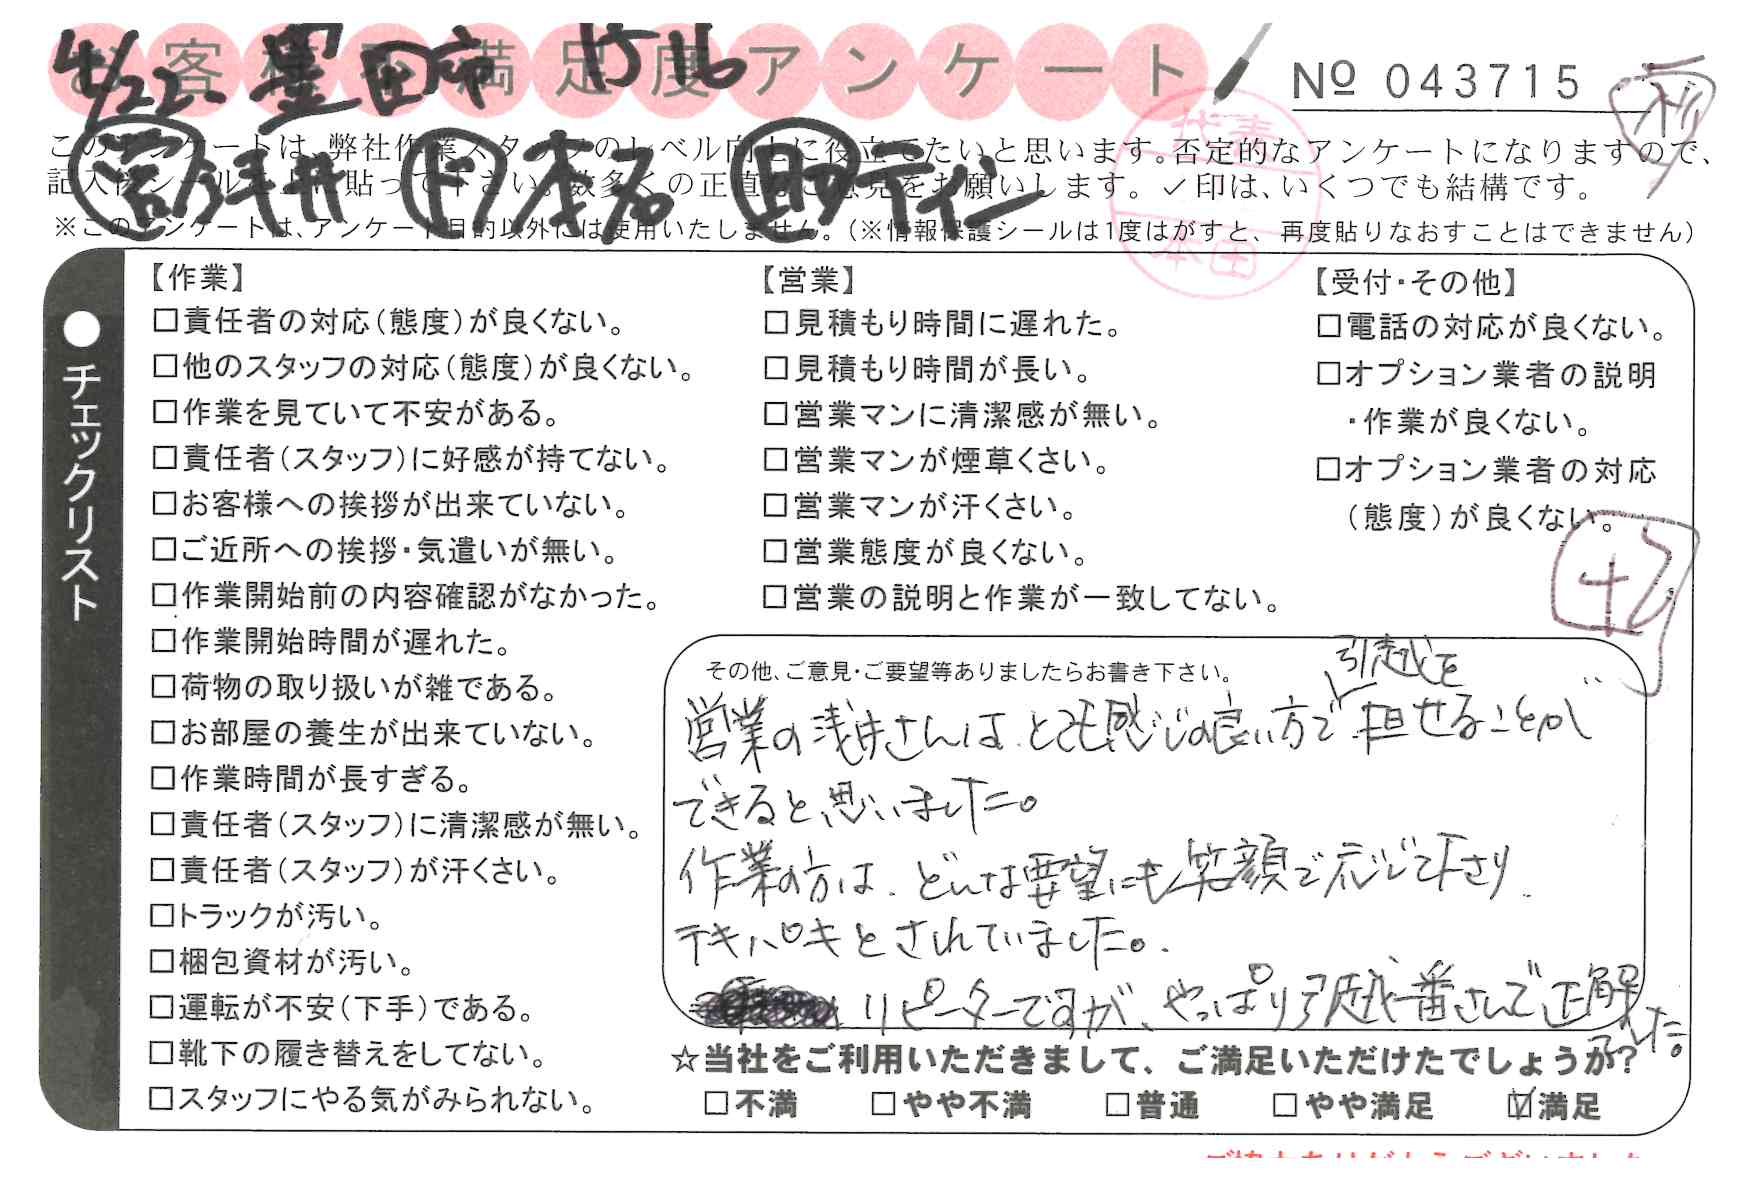 お客様不満足度アンケート
4/22 豊田市
№ 043715
このアンケートは、弊社作業スタッフのレベル向上に役立てたいと思います。否定的なアンケートになりますので、
記入後シールを上に貼って下さい。数多くの正直なご意見をお願いします。✓印は、いくつでも結構です。
営 浅井 ド 本名 助 ティン
代表
本田
※このアンケートは、アンケート目的以外には使用いたしません。(※情報保護シールは1度はがすと、再度貼りなおすことはできません)
●チェックリスト
【作業】
□責任者の対応(態度)が良くない。
□他のスタッフの対応(態度)が良くない。
□作業を見ていて不安がある。
□責任者(スタッフ)に好感が持てない。
□お客様への挨拶が出来ていない。
□ご近所への挨拶・気遣いが無い。
□作業開始前の内容確認がなかった。
□作業開始時間が遅れた。
□荷物の取り扱いが雑である。
□お部屋の養生が出来ていない。
□作業時間が長すぎる。
□責任者(スタッフ)に清潔感が無い。
□責任者(スタッフ)が汗くさい。
□トラックが汚い。
□梱包資材が汚い。
□運転が不安(下手)である。
□靴下の履き替えをしてない。
□スタッフにやる気がみられない。
【営業】
□見積もり時間に遅れた。
□見積もり時間が長い。
□営業マンに清潔感が無い。
□営業マンが煙草くさい。
□営業マンが汗くさい。
□営業態度が良くない。
□営業の説明と作業が一致してない。
【受付・その他】
□電話の対応が良くない。
□オプション業者の説明
・作業が良くない。
□オプション業者の対応
(態度)が良くない。
その他、ご意見・ご要望等ありましたらお書き下さい。
引越を
営業の浅井さんは、とても感じの良い方で担せることが
できると思いました。
作業の方は、どんな要望にも笑顔で応じて下さり、
テキパキとされていました。
リピーターですが、やっぱり引越一番さんで正解
でした。
☆当社をご利用いただきまして、ご満足いただけたでしょうか?
□不満 □やや不満 □普通 □やや満足 ☑満足
ご協力ありがとうございました